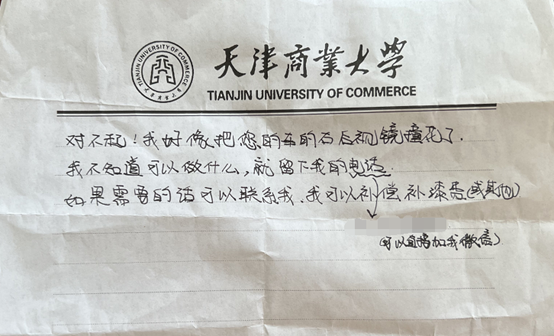 天津商業大學
TIANJIN UNIVERSITY OF COMMERCE
对不起！我好像把您的车的右后视镜撞花了.
我不知道可以做什么，就留下我的电话.
如果需要的话可以联系我，我可以补偿补漆费(或其他)
(可以直接加我微信)